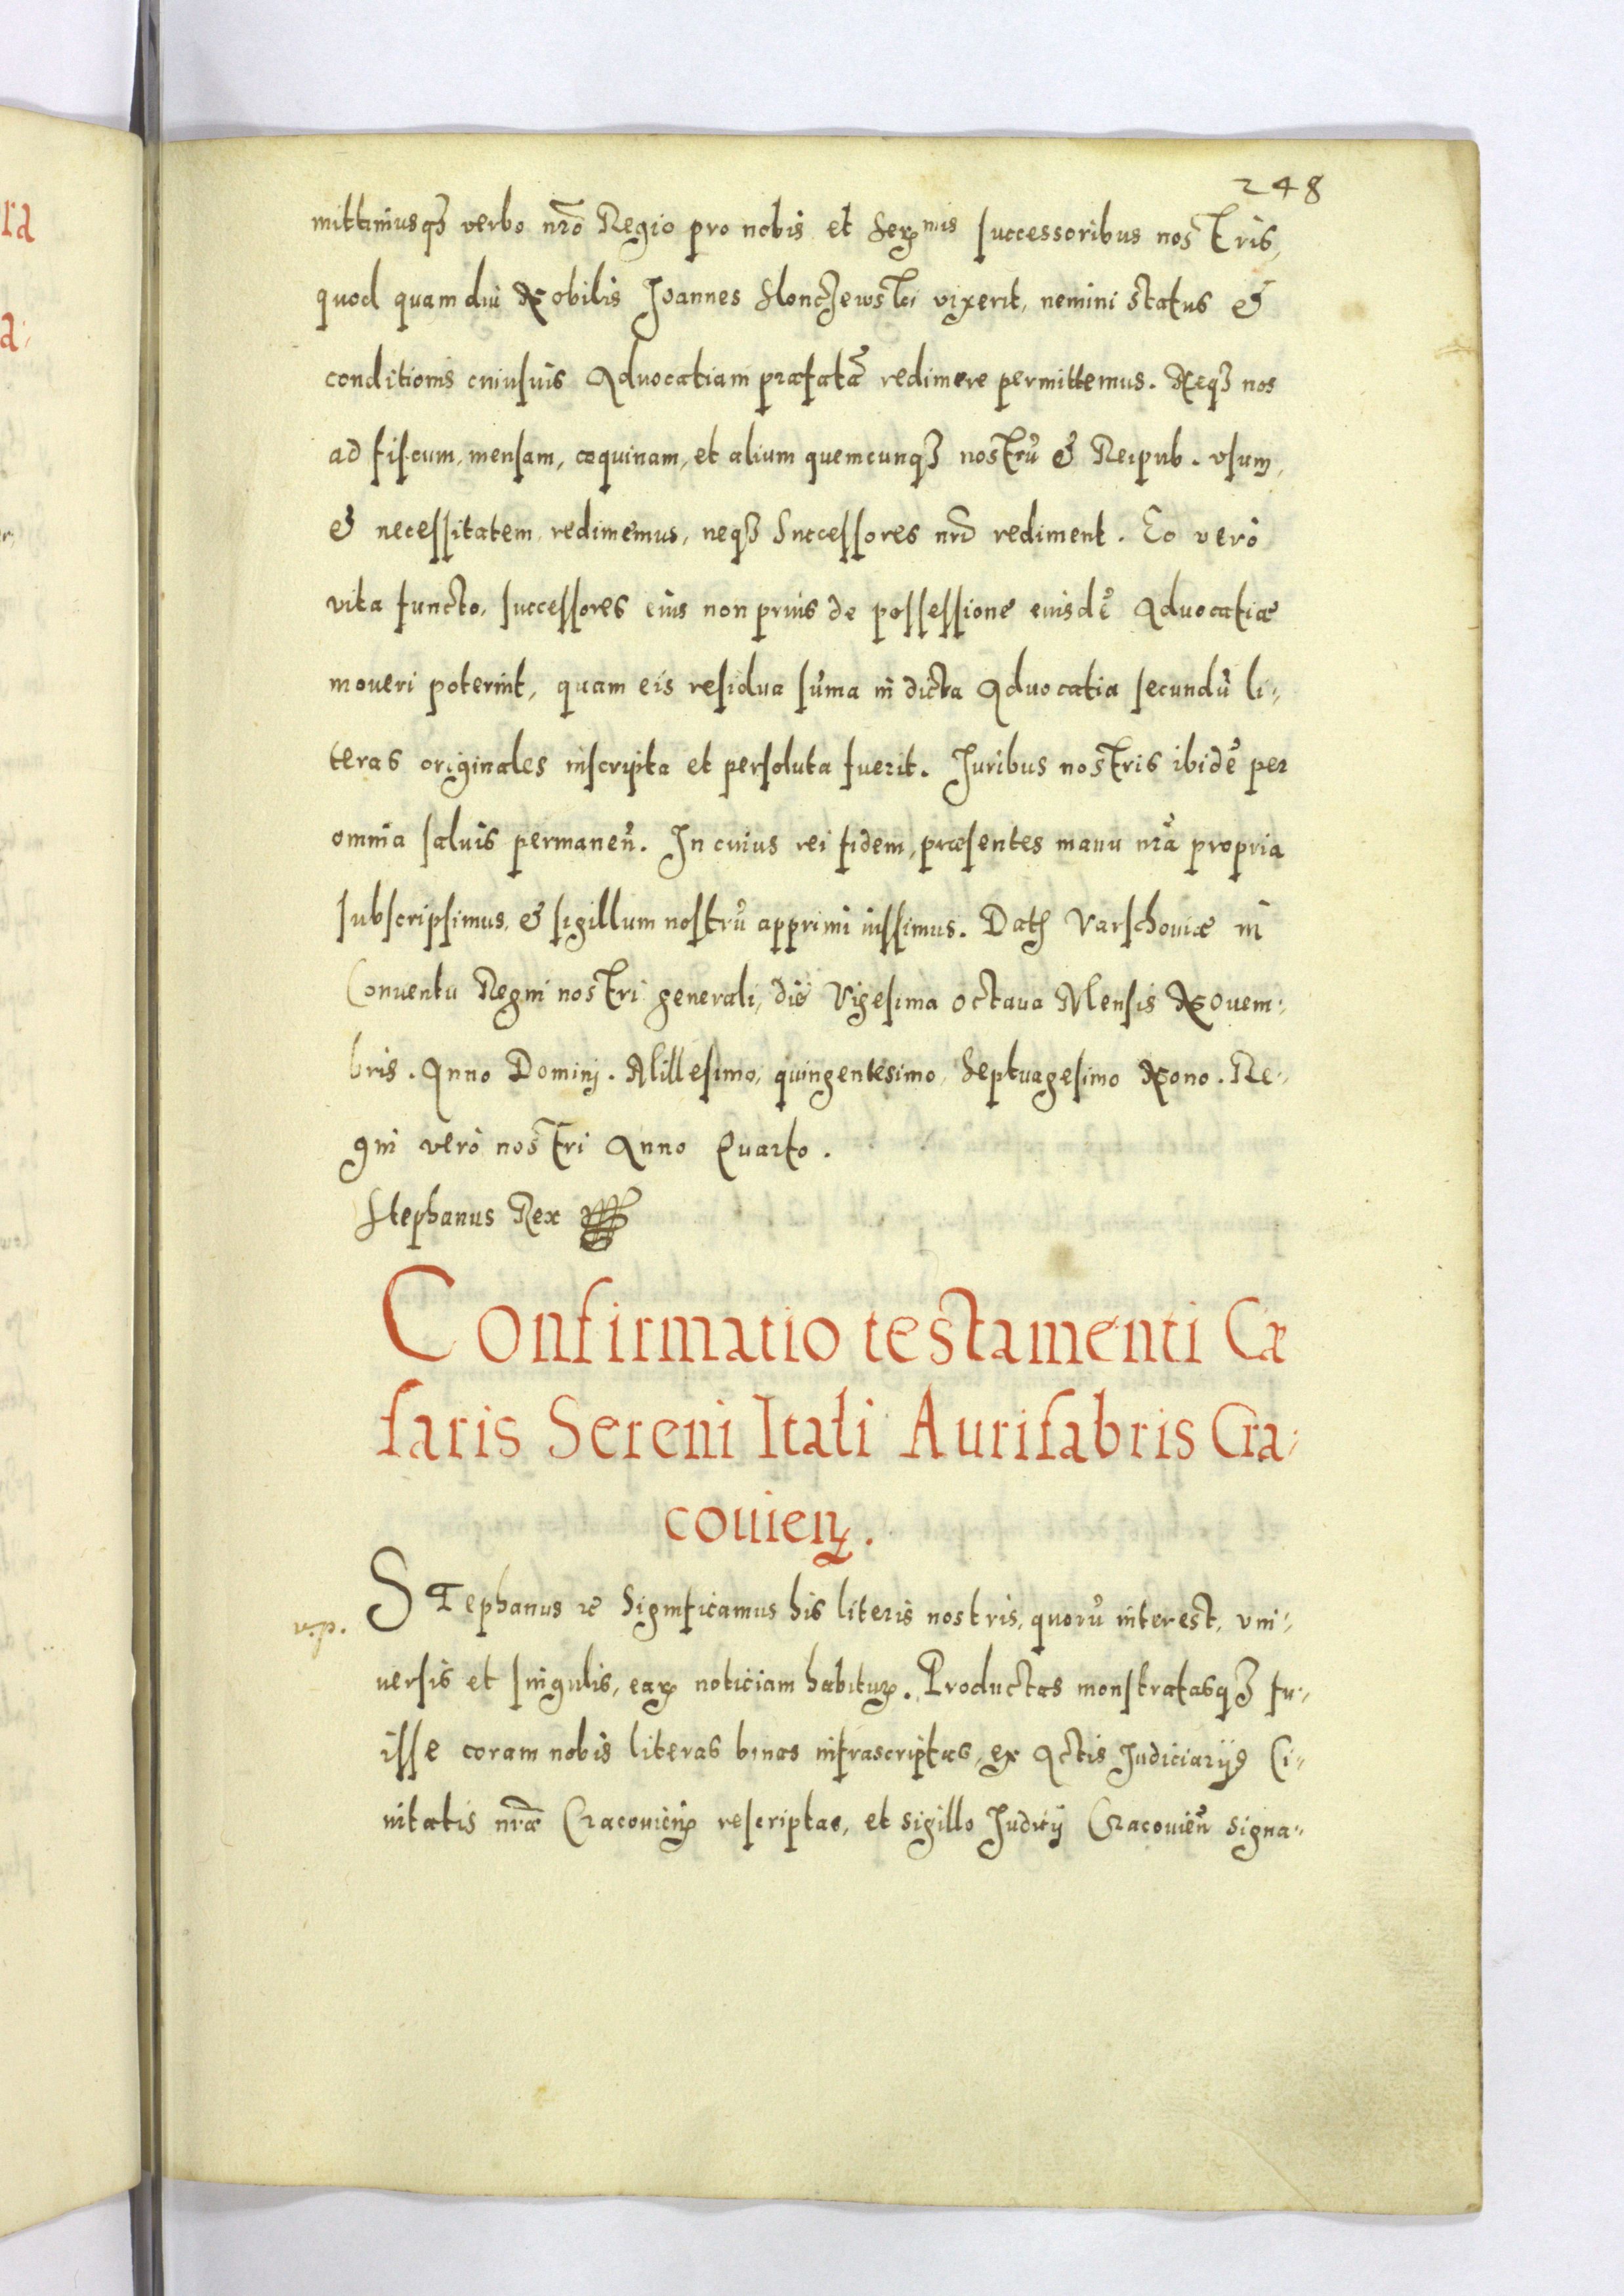 248
mittimusqȝ verbo nr̃o Regio pro nobis et Serꝫmis successoribus nostris,
quod quam diu Nobilis Joannes Slonczewski vixerit, nemini status &
conditionis cuiusuis Aduocatiam præfatã redimere permittemus. Neqȝ nos
ad fiscum, mensam, coquinam, et alium quemcunqȝ nostrũ & Reipub. vsum,
& necessitatem redimemus, neqȝ Successores nr̃i rediment. Eo verò
vita functo, successores eius non prius de possessione eiusdẽ Aduocatiæ
moueri poterint, quam eis residua sũma in dicta Aduocatia secundũ li-
teras originales inscripta et persoluta fuerit. Juribus nostris ibidẽ per
omnia saluis permaneñ. In cuius rei fidem, præsentes manu nr̃a propria
subscripsimus, & sigillum nostrũ apprimi iussimus. Datꝭ Varschouiæ in
Conuentu Regni nostri generali, die Vigesima octaua Mensis Nouem-
bris. Anno Dominj. Millesimo, quingentesimo, Septuagesimo Nono. Re-
gni verò nostri Anno Quarto.
Stephanus Rex
Confirmatio testamenti Cæ
saris Sereni Itali Aurifabris Cra-
couieñ.
v.p.
Stephanus ꝛc Significamus his literis nostris, quorũ interest, vni-
uersis et singulis, eaꝝ noticiam habituꝝ. Productas monstratasqȝ fu-
isse coram nobis literas binas infrascriptas, ex Actis Judiciarijs Ci-
uitatis nr̃æ Cracouieñ rescriptas, et sigillo Judicij Cracouieñ signa-